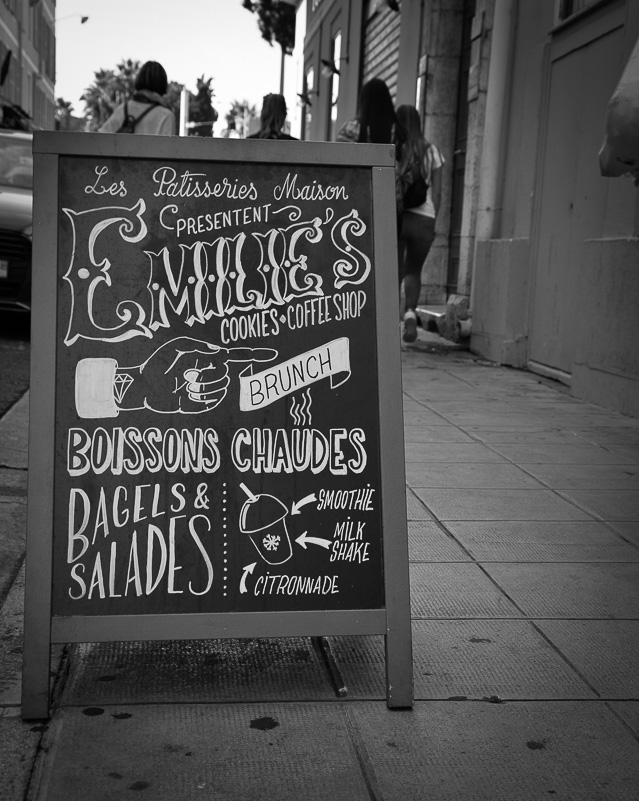 Les Patisseries Maison
PRESENTENT
EMILIE'S
COOKIES • COFFEE SHOP
BRUNCH
BOISSONS CHAUDES
BAGELS &
SALADES
SMOOTHIE
MILK
SHAKE
CITRONNADE